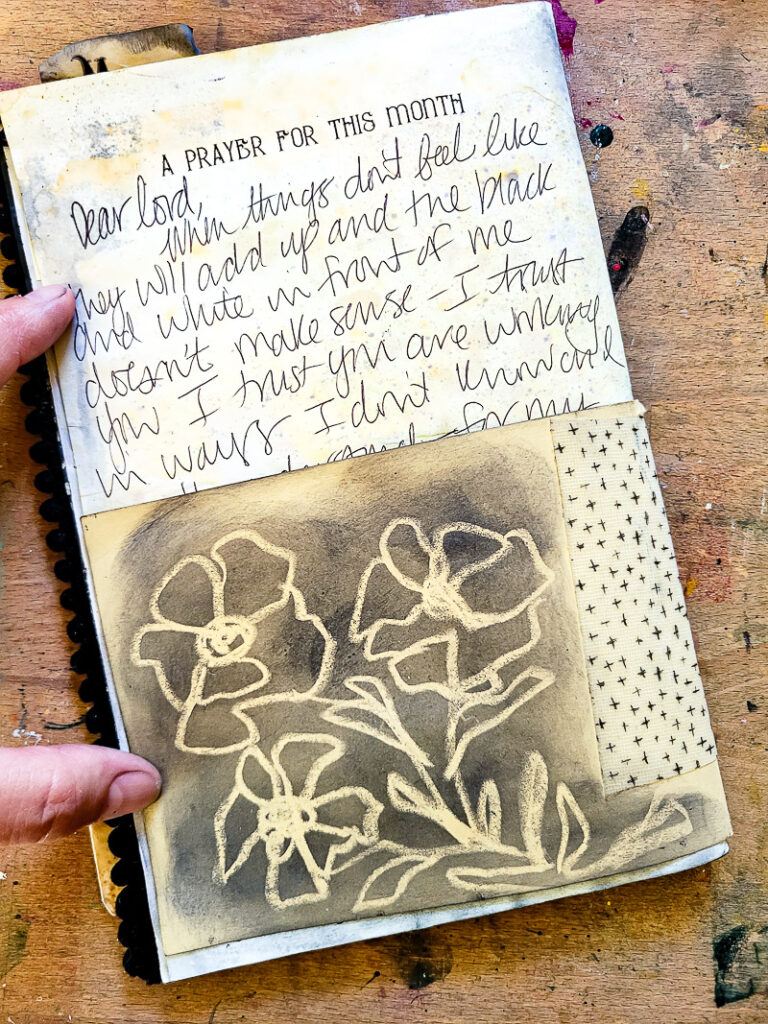 M
A PRAYER FOR THIS MONTH
Dear Lord,
When things don't feel like
they will add up and the black
and white in front of me
doesn't make sense - I trust
you I trust you are working
in ways I don't know and
for my